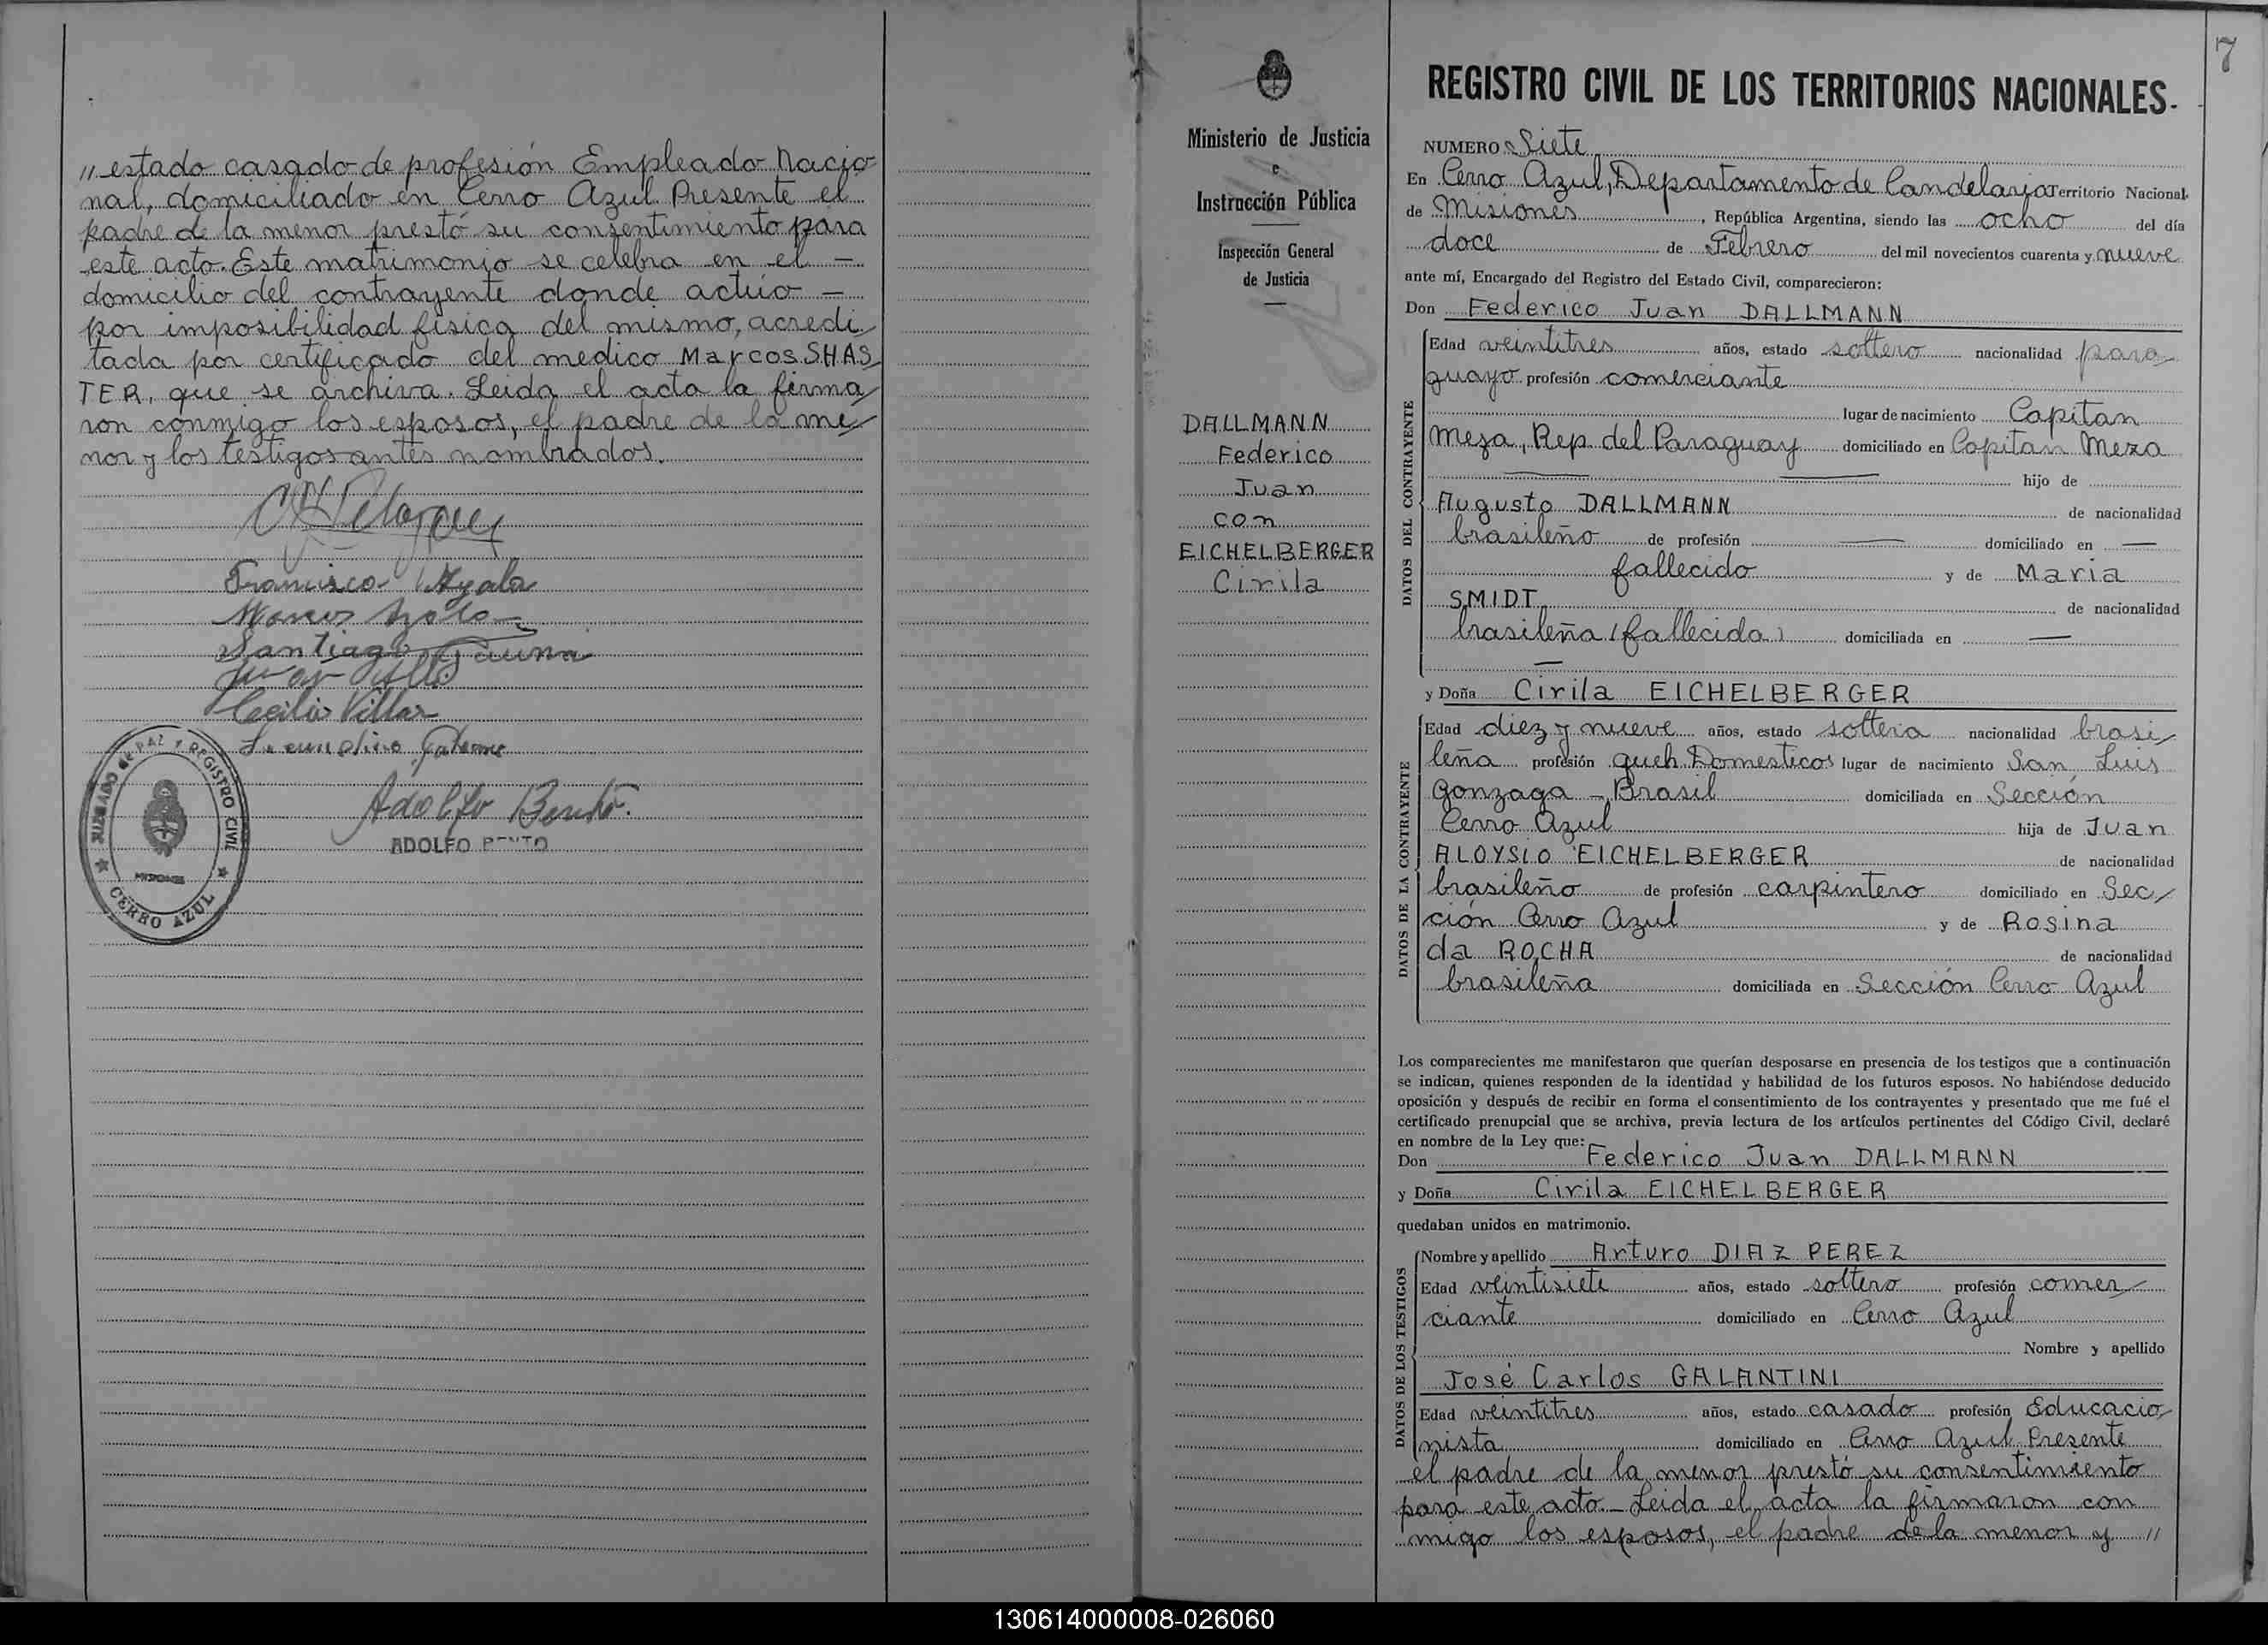 " estado casado de profesión Empleado Nacio
nal, domiciliado en Cerro Azul. Presente el
padre de la menor prestó su consentimiento para
este acto. Este matrimonio se celebra en el —
domicilio del contrayente donde actúo —
por imposibilidad física del mismo, acredi/
tada por certificado del medico Marcos SHAS/
TER, que se archiva. Leida el acta la firma/
ron conmigo los esposos, el padre de la me/
nor y los testigos antes nombrados.
Francisco Ayala
Marcos
Santiago
Cecilio Villar
Adolfo Bento.
ADOLFO BENTO
JUZGADO DE PAZ Y REGISTRO CIVIL
MISIONES
CERRO AZUL
Ministerio de Justicia
e
Instrucción Pública
Inspección General
de Justicia
DALLMANN
Federico
Juan
con
EICHELBERGER
Cirila
7
REGISTRO CIVIL DE LOS TERRITORIOS NACIONALES.
NUMERO Siete
En Cerro Azul, Departamento de Candelaria Territorio Nacional
de Misiones, República Argentina, siendo las ocho del día
doce de Febrero del mil novecientos cuarenta y nueve
ante mí, Encargado del Registro del Estado Civil, comparecieron:
Don Federico Juan DALLMANN
DATOS DEL CONTRAYENTE
Edad veintitres años, estado soltero nacionalidad para/
guayo profesión comerciante
lugar de nacimiento Capitan
Meza, Rep. del Paraguay domiciliado en Capitan Meza
hijo de
Augusto DALLMANN de nacionalidad
brasileño de profesión — domiciliado en —
fallecido y de Maria
SMIDT de nacionalidad
brasileña (fallecida) domiciliada en —
y Doña Cirila EICHELBERGER
DATOS DE LA CONTRAYENTE
Edad diez y nueve años, estado soltera nacionalidad brasi/
leña profesión queh. Domesticos lugar de nacimiento San Luis
Gonzaga - Brasil domiciliada en Sección
Cerro Azul hija de Juan
ALOYSIO EICHELBERGER de nacionalidad
brasileño de profesión carpintero domiciliado en Sec/
ción Cerro Azul y de Rosina
da ROCHA de nacionalidad
brasileña domiciliada en Sección Cerro Azul
Los comparecientes me manifestaron que querían desposarse en presencia de los testigos que a continuación
se indican, quienes responden de la identidad y habilidad de los futuros esposos. No habiéndose deducido
oposición y después de recibir en forma el consentimiento de los contrayentes y presentado que me fué el
certificado prenupcial que se archiva, previa lectura de los artículos pertinentes del Código Civil, declaré
en nombre de la Ley que:
Don Federico Juan DALLMANN
y Doña Cirila EICHELBERGER
quedaban unidos en matrimonio.
DATOS DE LOS TESTIGOS
Nombre y apellido Arturo DIAZ PEREZ
Edad veintisiete años, estado soltero profesión comer/
ciante domiciliado en Cerro Azul
Nombre y apellido
José Carlos GALANTINI
Edad veintitres años, estado casado profesión Educacio/
nista domiciliado en Cerro Azul Presente
el padre de la menor prestó su consentimiento
para este acto - Leida el acta la firmaron con
migo los esposos, el padre de la menor y "
130614000008-026060